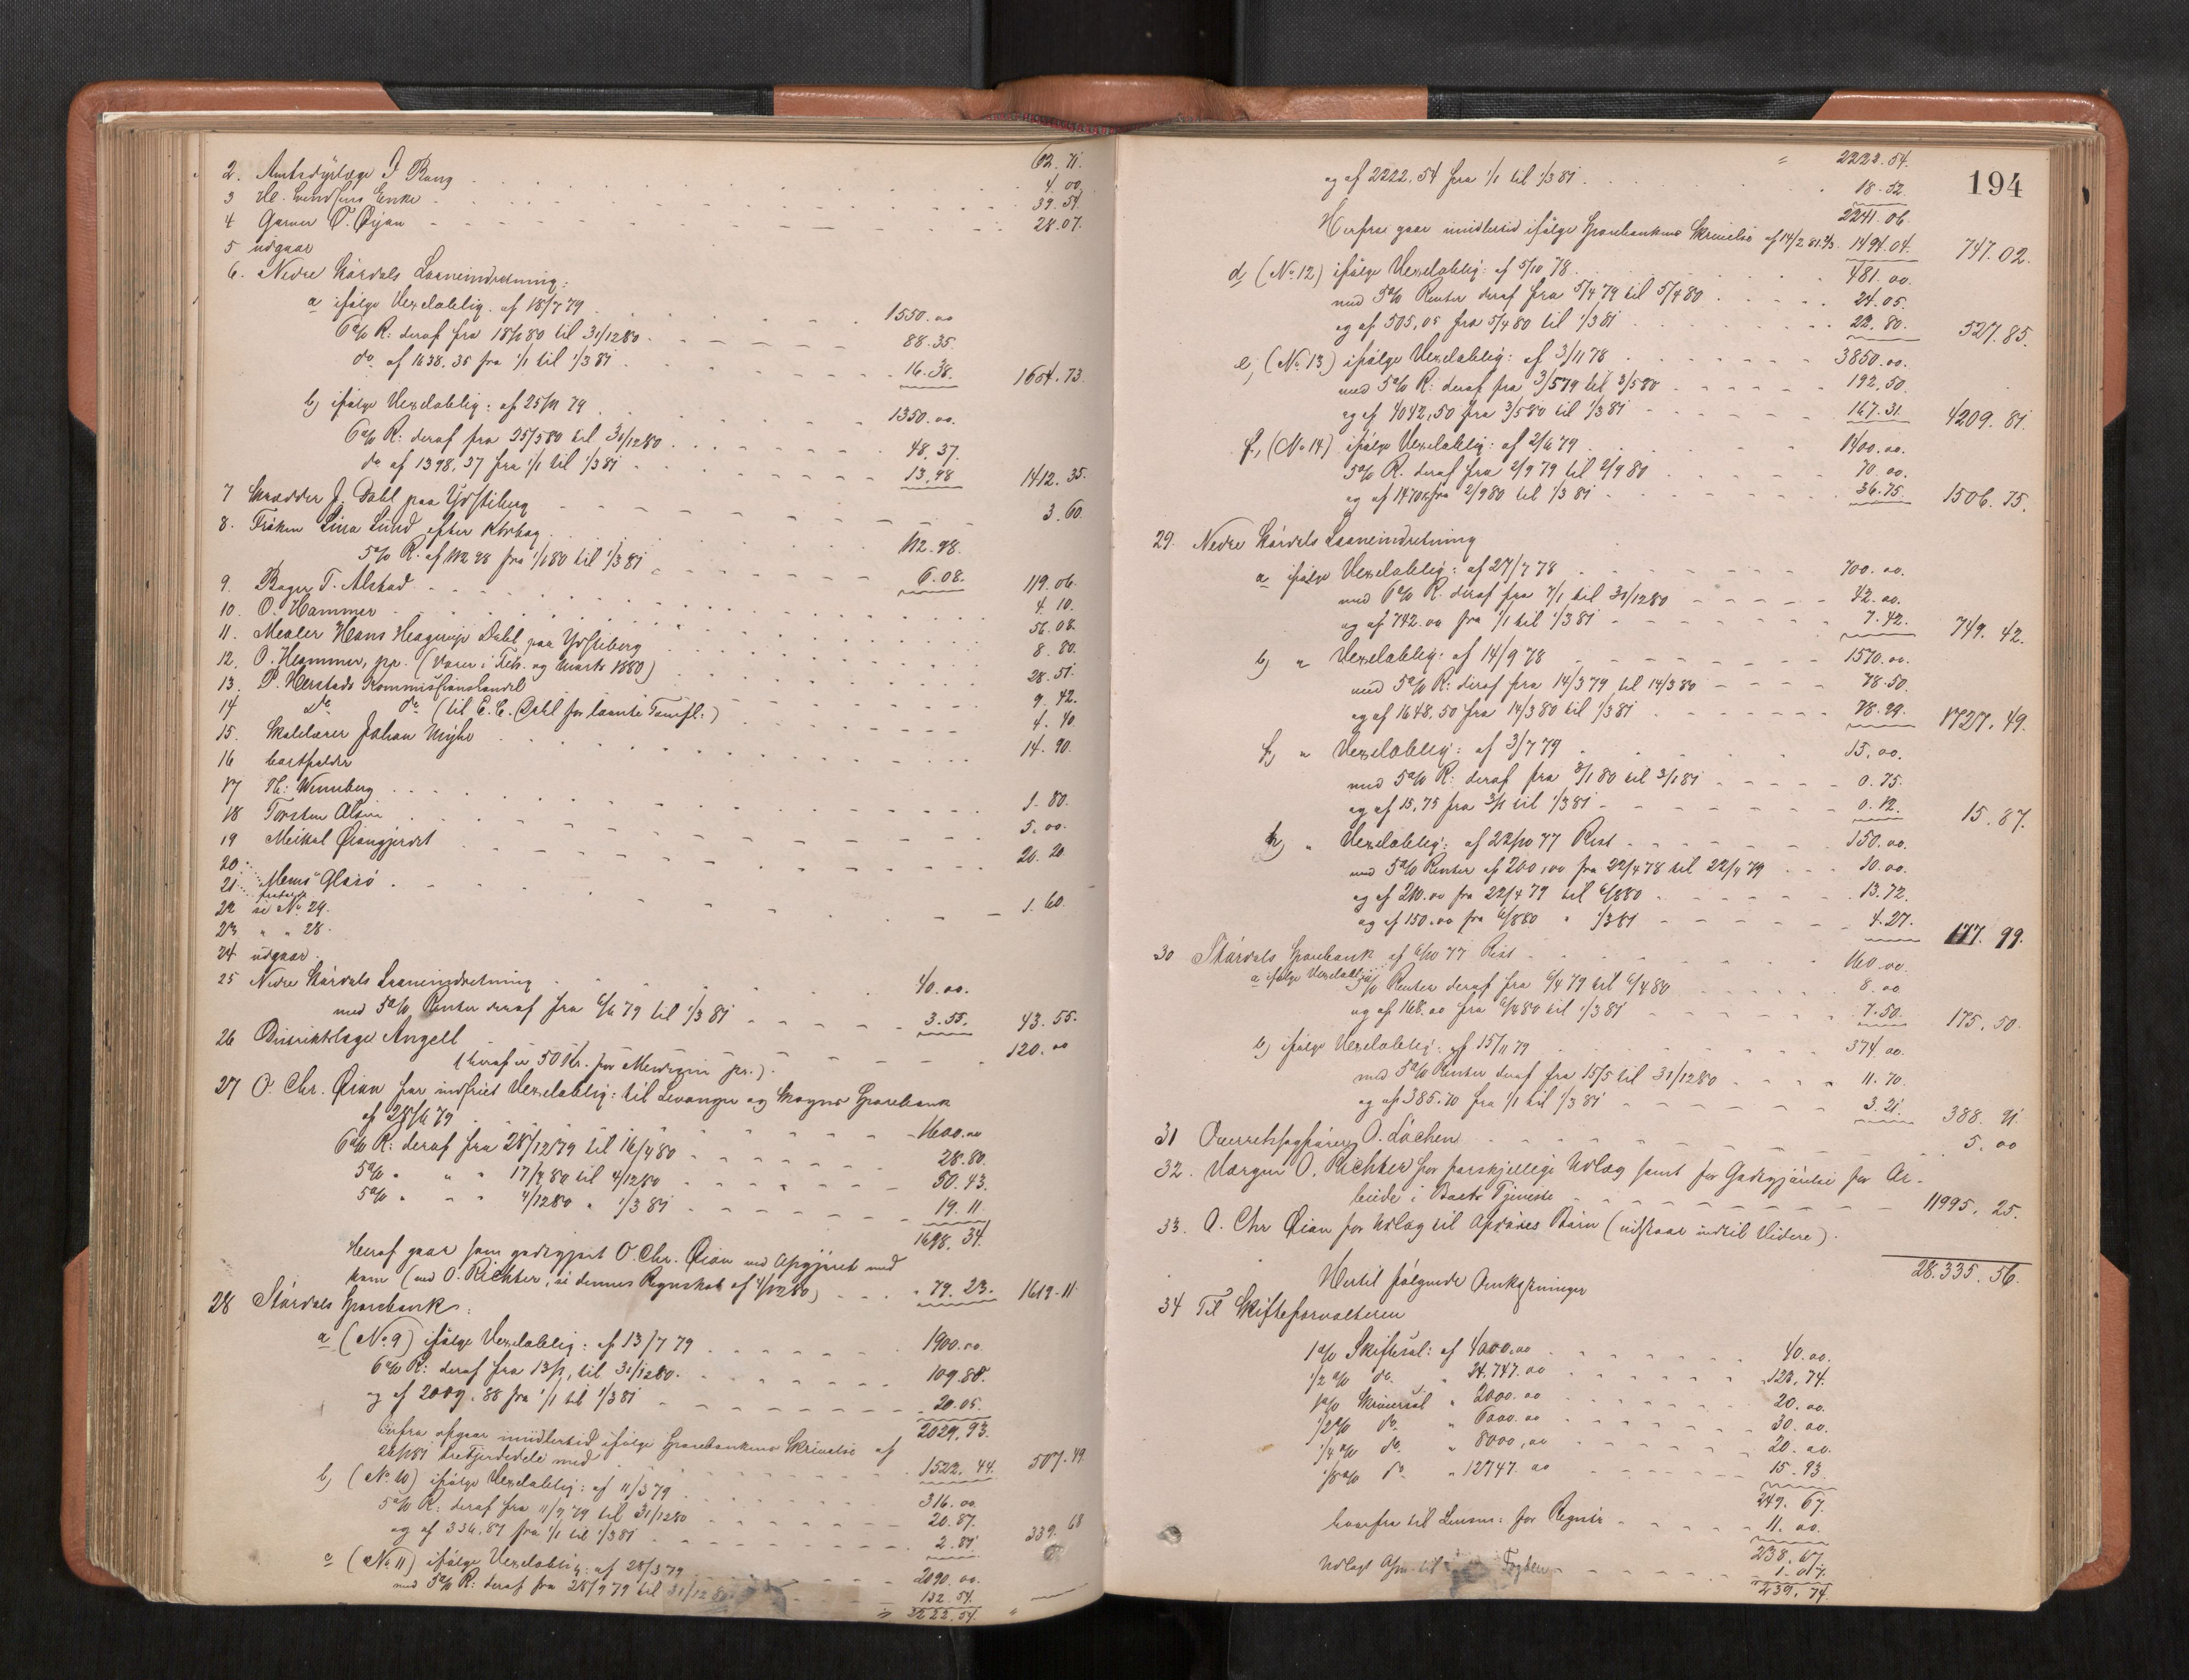 62.71.
2. Amtsdyrlæge J Bang 4.00
3 Hl. Lundsens Enke 39.51.
4 Garver O. Øijan 28.07.
5 udgaar
6. Nedre Stördals Laaneindretning:
a ifölge Vexeloblig. af 18/7 79 1550.00
6 % R: deraf fra 18/1 80 til 31/12 80 88.35.
do af 1638.35 fra 1/1 til 1/3 81 16.38. 1654.73.
b, ifölge Vexeloblig: af 25/11 79 1350.00.
6 % R: deraf fra 25/5 80 til 31/12 80 48.37.
do af 1398.37 fra 1/1 til 1/3 81 13.98 1412.35.
7 Skrædder J. Dahl paa Ydstiberg 3.60.
8. Fröken Lina Lund efter 112.98.
5 % R. af 112 98 fra 1/1 80 til 1/3 81 6.08. 119.06.
9. Bager T. Alstad 4.10.
10. O. Hammer 56.08.
11. Maler Hans Heagerup Dahl paa Ydstiberg 8.80.
12. O. Hammer, pp. (Varer i Feb. og Marts 1880) 28.51.
13. P. Herstads Kommissionshandel 9.42.
14 do do (til E. C. Dahl for) 4.40.
15. Skolelærer Johan Myhr 14.90.
16 bortfalder
17 Th: Wenneberg 1.80.
18 Torsten Alsen 5.00.
19 Meikal Öiangjerdet 20.20
20.
21 Mons Glasö 1.60.
22 se No 29.
23 " " 28.
24 udgaar.
25 Nedre Stördals Laaneindretning 40.00.
med 5 % Renter deraf fra 6/6 79 til 1/3 81 3.55. 43.55.
26 Distriktslæge Angell 120.00
(heraf er 50 Kr. for Medicin pr.).
27 O. Chr. Öian for indfriet Vexeloblig: til Levanger og Skogns Sparebank
af 28/6 79 1600.00
6 % R: deraf fra 28/12 79 til 16/4 80 28.80.
5 % " " 17/4 80 til 4/12 80 50.43.
5 % " " 4/12 80 " 1/3 81 19.11.
1698.34.
Heraf gaar som godtgjort O. Chr. Öian ved Opgjöret med
ham (ved O. Richter, se dennes Regnskab af 4/12 80) 79.23. 1619.11
28 Stördals Sparebank:
a (No 9) ifölge Vexeloblig: af 13/7 79 1900.00
6 % R: deraf fra 13/1 til 31/12 80. 109.88.
og af 2009.88 fra 1/1 til 1/3 81 20.05.
2029.93.
herfra afgaar imidlertid ifölge Sparebankens Skrivelse af
22/1 81 trefjerdedele med 1522.44. 507.49
b, (No 10) ifölge Vexeloblig: af 11/3 79 316.00
5 % R: deraf fra 11/9 79 til 31/12 80 20.87.
og af 336.87 fra 1/1 til 1/3 81 2.81. 339.68
c (No 11) ifölge Vexeloblig: af 28/3 79 2090.00.
med 5 % R: deraf fra 28/9 79 til 31/12 80 132.54.
" 2222.54. "
194
" 2222.54.
og af 2222.54 fra 1/1 til 1/3 81 18.52.
2241.06.
Herfra gaar imidlertid ifölge Sparebankens Skrivelse af 14/2 81 2/3 1494.04. 747.02.
d (No 12) ifölge Vexeloblig: af 5/10 78 481.00.
med 5 % Renter deraf fra 5/4 79 til 5/4 80 24.05.
og af 505,05 fra 5/4 80 til 1/3 81 22.80. 527.85.
e, (No 13) ifölge Vexeloblig: af 3/11 78 3850.00.
med 5 % R: deraf fra 3/5 79 til 3/5 80 192,50.
og af 4042,50 fra 3/5 80 til 1/3 81 167.31. 4209.81.
f, (No 14) ifölge Vexeloblig: af 2/6 79 1400.00.
5 % R. deraf fra 2/9 79 til 2/9 80 70.00.
og af 1470 fra 2/9 80 til 1/3 81 36.75. 1506.75.
29. Nedre Stördals Laaneindretning
a ifölge Vexeloblig: af 27/7 78 700.00.
med 6 % R. deraf fra 1/1 til 31/12 80 42.00.
og af 742.00 fra 1/1 til 1/3 81 7.42. 749.42.
b, " Vexeloblig: af 14/9 78 1570.00.
med 5 % R: deraf fra 14/3 79 til 14/3 80 78.50.
og af 1648,50 fra 14/3 80 til 1/3 81 78.99. 1727.49.
f, " Vexeloblig: af 3/7 79 15.00.
med 5 % R: deraf fra 3/1 80 til 3/1 81 0.75.
og af 15,75 fra 3/1 til 1/3 81 0.12. 15.87.
h, " Vexeloblig: af 22/10 77 Rest 150.00.
med 5 % Renter af 200,00 fra 22/4 78 til 22/4 79 10.00.
og af 210.00 fra 22/4 79 til 6/8 80 13.72.
og af 150.00 fra 6/8 80 " 1/3 81 4.27. 177.99.
30 Stördals Sparebank af 6/10 77 Rest 160.00.
a ifölge Vexeloblig: 5 % Renter deraf fra 6/4 79 til 6/4 80 8.00
og af 168.00 fra 6/4 80 til 1/3 81 7.50. 175.50.
b, ifölge Vexeloblig: af 15/11 79 374.00.
med 5 % Renter deraf fra 15/5 til 31/12 80 11.70.
og af 385.70 fra 1/1 til 1/3 81 3.21. 388.91.
31 Overretssagförer O. Löchen 5.00
32. Værgen O. Richter for forskjellige Udlæg samt for Godtgjörelse for Ar-
beide i Boets Tjeneste 11995.25.
33. O. Chr Öian for Udlæg til Afdödes Börn (udstaar indtil Videre).
28.335.56.
Hertil fölgende Omkostninger
34 Til Skifteforvalteren
1 % Skiftesal: af 4000.00 40.00.
1/2 % do. " 24.747.00 123.74.
1 % Skriversal " 2000.00 20.00.
1/2 % do " 6000.00 30.00.
1/4 % do " 8000,00 20.00.
1/8 % do " 12747.00 15.93.
249.67.
hvorfra til Lensm: for Registr 11.00.
238.67.
Udlagt til Fogden 1.07.
239.74.